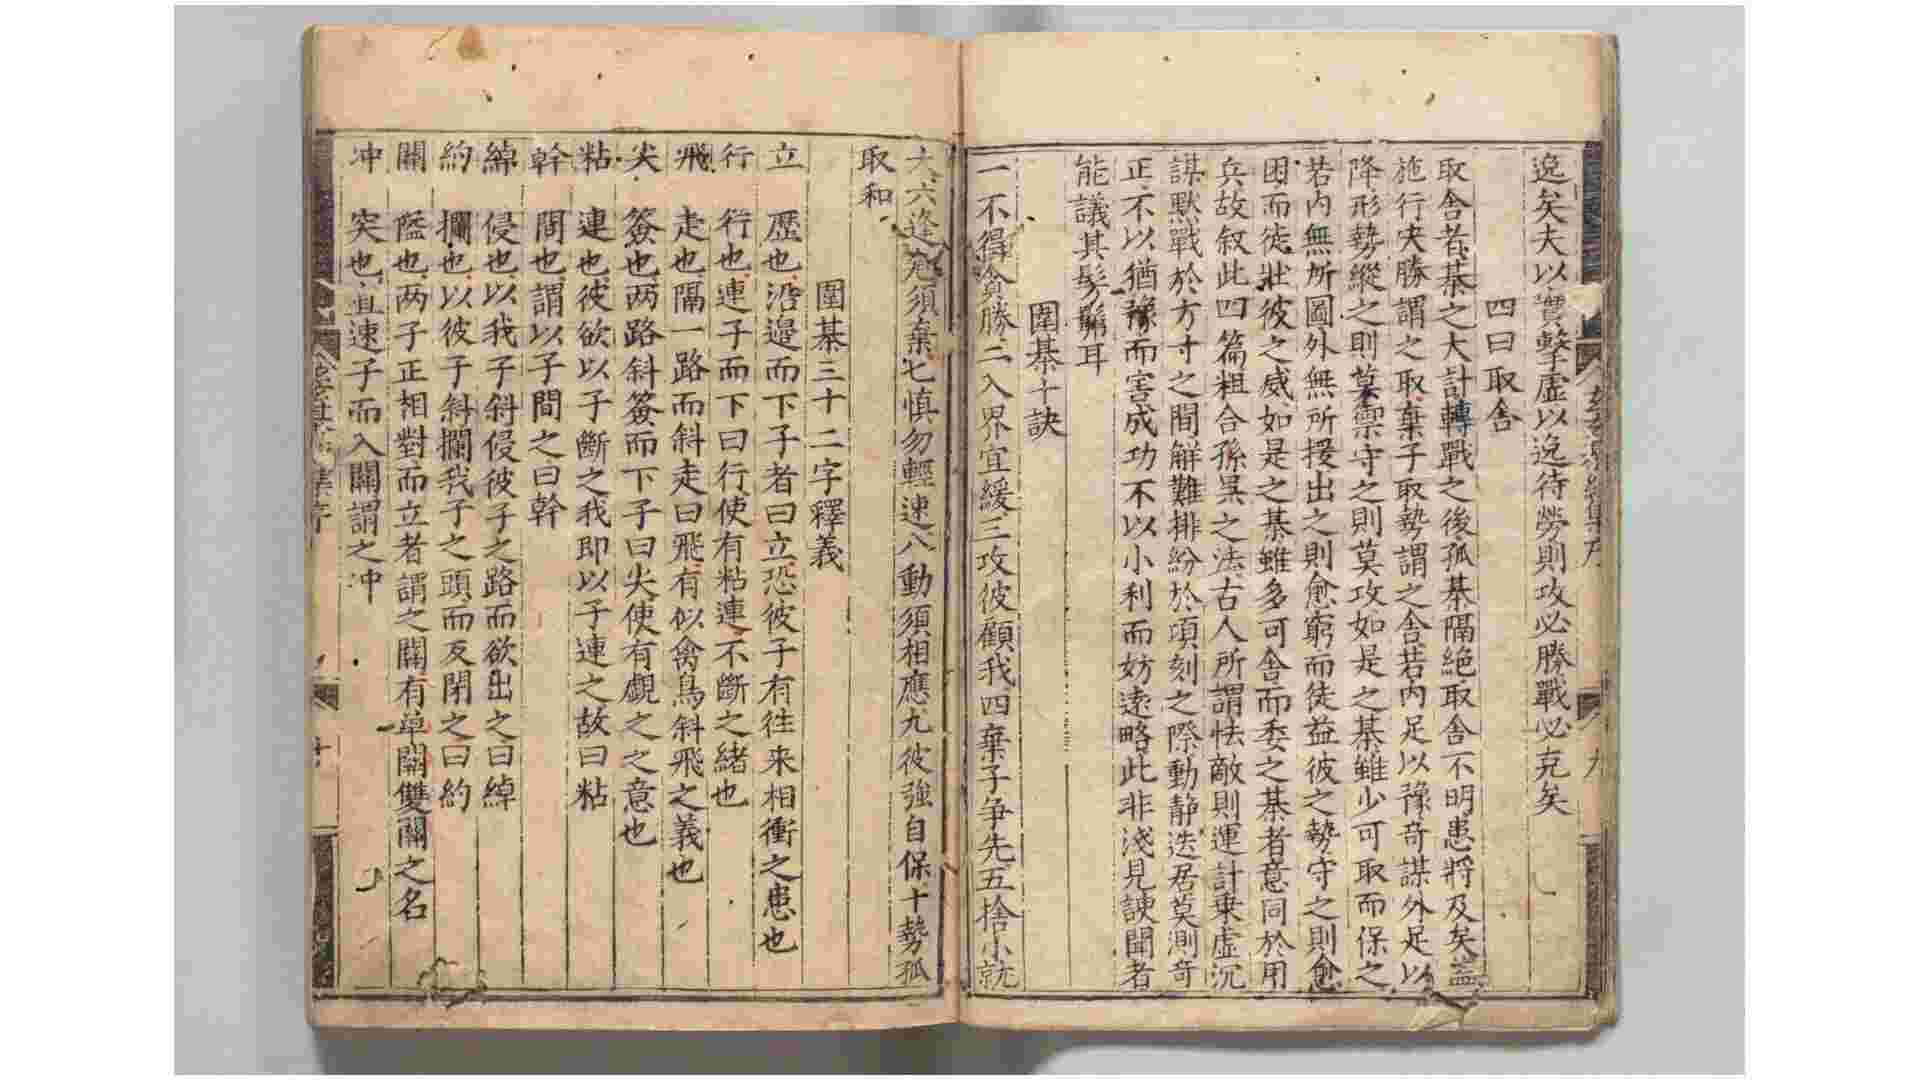 逸矣夫以實擊虛以逸待勞則攻必勝戰必克矣
四曰取舍
取舍者棊之大計轉戰之後孤棊隔絕取舍不明患將及矣盖
施行决勝謂之取棄子取勢謂之舍若內足以豫奇謀外足以
降形勢縱之則莫禦守之則莫攻如是之棊雖少可取而保之
若內無所圖外無所援出之則愈窮而徒益彼之勢守之則愈
困而徒壯彼之威如是之棊雖多可舍而委之棊者意同於用
兵故叙此四篇粗合孫吴之法古人所謂怯敵則運計乗虛沉
謀默戰於方寸之間解難排紛於頃刻之際動静迭居莫測竒
正不以猶豫而害成功不以小利而妨遠略此非淺見諛聞者
能議其髣髴耳
圍棊十訣
一不得貪勝二入界宜緩三攻彼顧我四棄子争先五捨小就
大六逢危須棄七慎勿輕速八動須相應九彼強自保十勢孤
取和
圍棊三十二字釋義
立 歷也沿邉而下子者曰立恐彼子有徃来相衝之患也
行 行也連子而下曰行使有粘連不斷之緒也
飛 走也隔一路而斜走曰飛有似禽鳥斜飛之義也
尖 簽也两路斜簽而下子曰尖使有覷之之意也
粘 連也彼欲以子斷之我即以子連之故曰粘
幹 間也謂以子間之曰幹
綽 侵也以我子斜侵彼子之路而欲出之曰綽
約 攔也以彼子斜攔我子之頭而反閉之曰約
關 隘也两子正相對而立者謂之關有单關雙關之名
冲 突也直速子而入關謂之冲